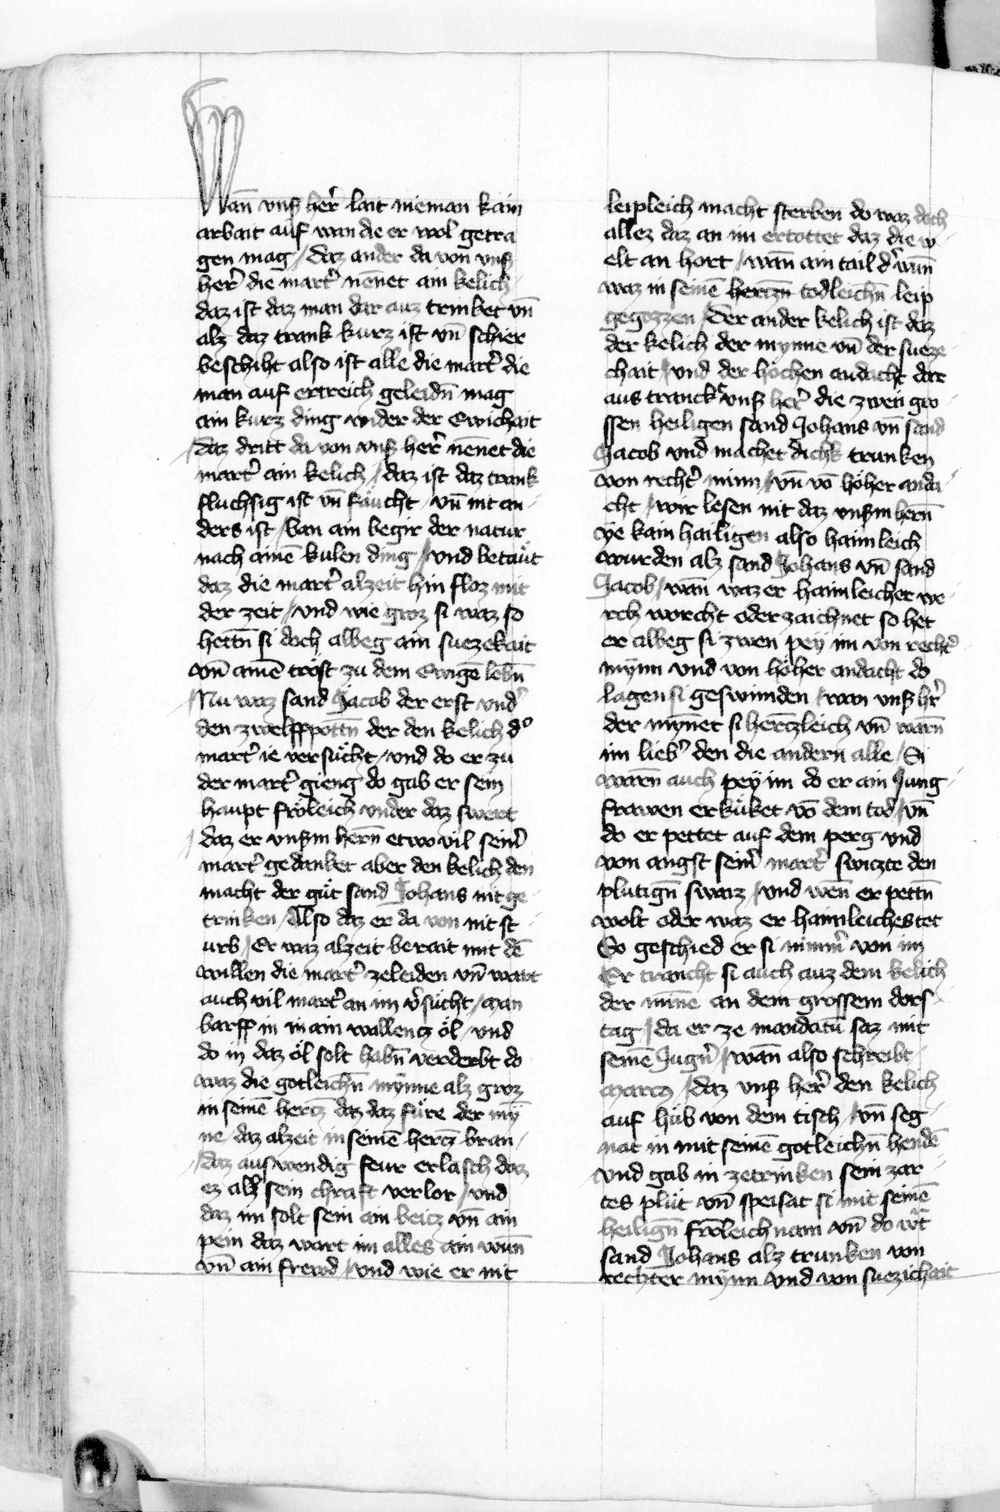 Wan̄ vnſs her̓ lait nieman kain
arbait auf wan die er wol getra
gen mag / Daz ander da von vnſs
her̓ die mart̓ nēnet ain kelich
daz iſt daz man dar auz trinket vn̄
alz daz trank kurz iſt vn̄ ſchier
beſchiht alſo iſt alle die mart̓ die
man auf ertreich geleidn̄ mag
ain kurz ding wider der Ewichait
/ Daz dritt da von vnſs her̓ nēnet die
mart̓ ain kelich / daz iſt daz trank
fluchſig iſt vn̄ fäucht / vn̄ nit an-
ders iſt / ban ain begir der natur
nach ainē kulen ding / vnd betaüt
daz die mart̓ alzeit hin floz mit
der zeit / vnd wie groz ſi waz ſo
hettn̄ ſi doch albeg ain ſuezekait
vn̄ ainē tröſt zu dem Ewigē lebn̄
/ Nu waz ſand Jacob der erſt vnd̓
den zwelffpottn̄ der den kelich d̓
mart̓ ie verſücht / vnd do er zu
der mart̓ gieng do gab er ſein
haupt fröleich vnder daz ſwert
/ daz er vnſſm hern̄ etwo vil ſein̓
mart̓ gedanket aber den kelich den
macht der güt ſand Johans nit ge-
trinken / Alſo daz er da von nit ſt
urb / Er waz alzeit berait mit dē
willen die mart̓ zeleiden vn̄ wart
auch vil mart̓ an im v̓ſücht / man
barff in in ain wallentz öl / vnd
do in daz öl ſolt habn̄ verderbt do
waz die gotleichn̄ mÿnne alz groz
in ſeinē hercz daz daz füre der mÿ
ne daz alzeit in ſeinē hercz bran /
/ Daz auſwendig feur erlaſch daz
ez alſs ſein chraft verlor / vnd
daz im ſolt ſein ain beitz vn̄ ain
pein daz wart im alles ain wun̄
vn̄ ain frewd / vnd wie er nit
leipleich macht ſterben do waz doch
allez daz an im ertottet daz die w
elt an hort / wan̄ ain tail d̓ wun̄
waz in ſeinē herczn̄ todleichn̄ leip
gegozzen / Der ander kelich iſt daz
der kelich der mynne vn̄ der ſueze
chait / vnd der höchen andacht dar
aus tranck̓ vnſs her̓ die zwen gro
ſſen heiligen ſand Johans vn̄ ſand
Jacob vnd machet dick̓ trunken
von recht̓ minn / vn̄ vō höher anda
cht / wir leſen nit daz vnſſm hern̄
ÿe kain hailigen alſo haimleich
wurden alz ſand Johans vn̄ ſand
Jacob / wan̄ waz er haimleicher we-
rch worcht oder zaichnet ſo het
er albeg ſi zwen peÿ im von recht̓
mÿnn vnd von höher andacht do
lagen ſi geſwinden / wan vnſs hr̓
der mÿnet ſi herczleich vn̄ warn̄
im lieb̓ den die andern alle / Si
warn̄ auch peÿ im do er ain Jung-
frawen erküket vō dem tod / vn̄
do er pettet auf dem perg vnd
von angſt ſein̓ mart̓ ſwiczte den
plutign̄ ſwaiz / vnd wen̄ er pettn̄
wolt oder waz er haimleicheſtet
So geſchied er ſi nimm̓ von im
Er trancht ſi auch auz dem kelich
der minne an dem groſſem dorſ-
tag / da er ze mandatū ſaz mit
ſeinē Jugn̓ / wan̄ alſo ſchreibt
marcus / daz vnſs her̓ den kelich
auf hüb von dem tiſch / vn̄ ſeg-
nat in mit ſeinē gotleichn̄ hendē
vnd gab in zetrinken ſein zar-
tes plüt vn̄ ſpeiſat ſi mit ſeinē
heilign̄ frōleichnam vn̄ do w̓t
ſand Johans alz trunken von
rechter mÿnn vnd von ſuezichait